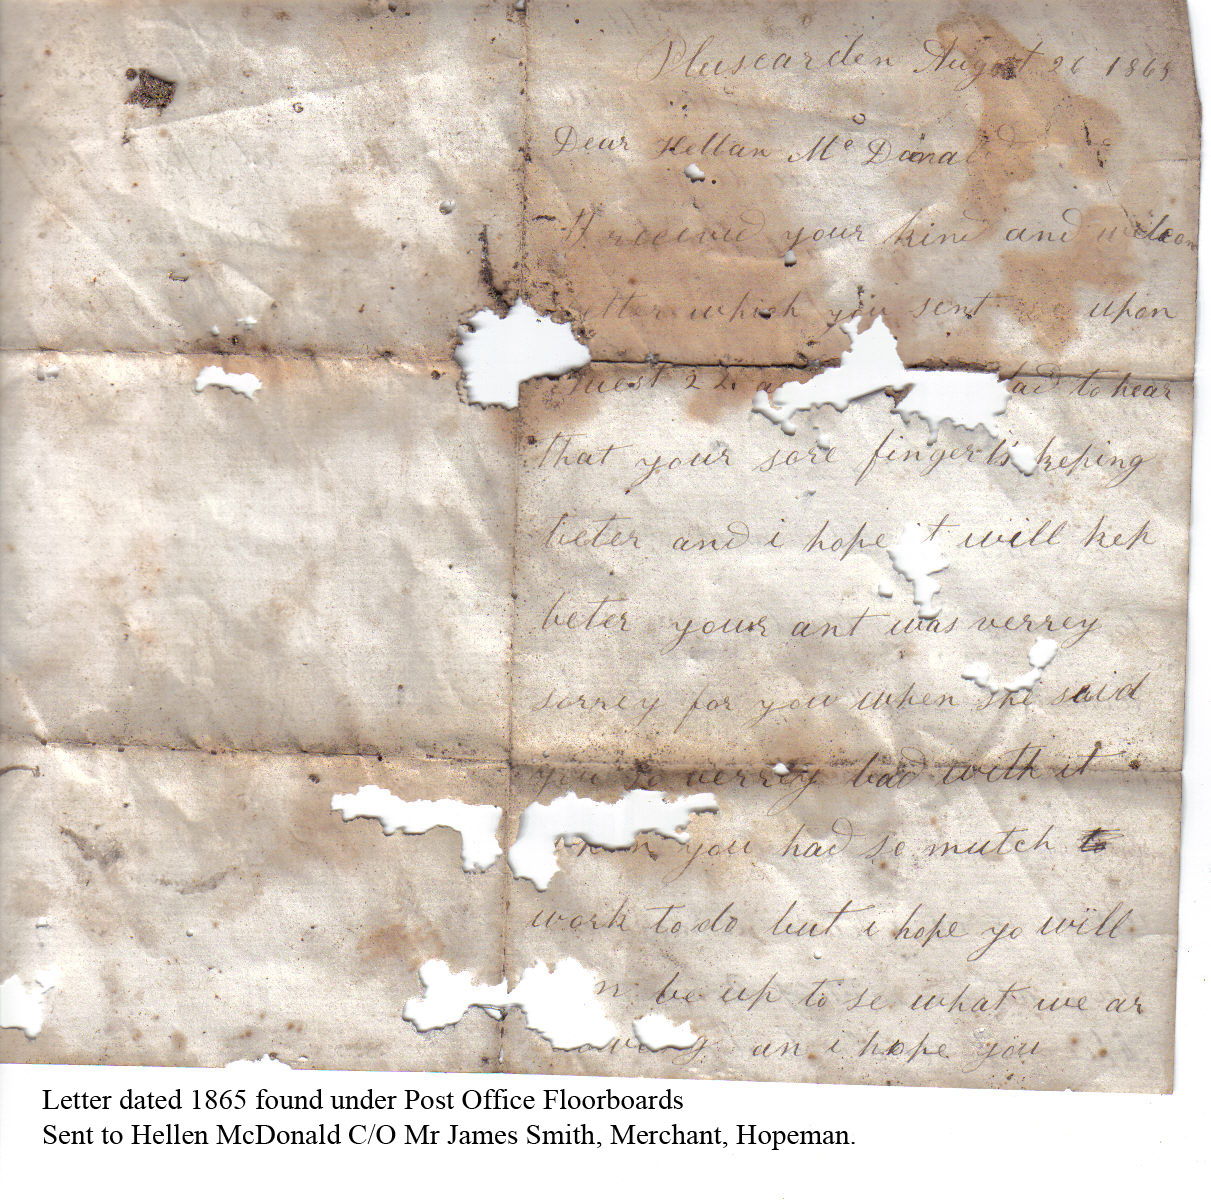 Pluscarden August 26 1865
Dear Hellan Mc Donald
I received your kind and welcom
letter which you sent upon
guest 22 a ad to hear
that your sore finger is keping
beter and i hope it will kep
beter your ant was verrey
sorrey for you when she said
you so verrey bad with it
you had so mutch to
work to do but i hope yo will
n be up to se what we ar
an i hope you
Letter dated 1865 found under Post Office Floorboards
Sent to Hellen McDonald C/O Mr James Smith, Merchant, Hopeman.